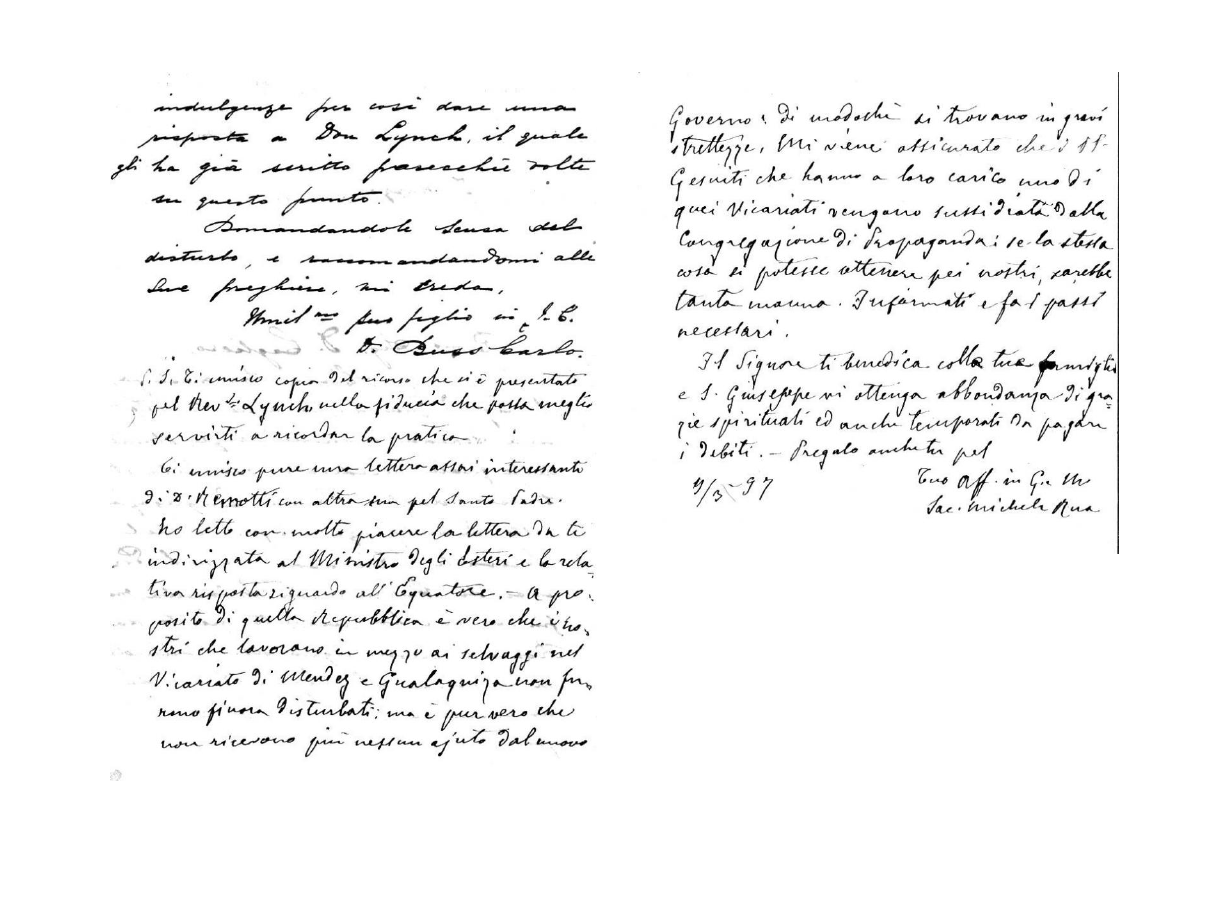 indulgenze per così dare una
risposta a Don Lynch, il quale
gli ha già scritto parecchie volte
su questo punto.
Domandandole scusa del
disturbo, e raccomandandomi alle
Sue preghiere, mi creda,
Umil.mo suo figlio in J. C.
D. Buss Carlo.
P. S. Ti unisco copia del ricorso che si è presentato
pel Rev.do Lynch nella fiducia che possa meglio
servirti a ricordar la pratica
Ti unisco pure una lettera assai interessante
di D. Remotti con altra sua pel Santo Padre.
Ho letto con molto piacere la lettera da te
indirizzata al Ministro degli Esteri e la rela-
tiva risposta riguardo all'Equatore. - A pro-
posito di quella Repubblica è vero che i no-
stri che lavorano in mezzo ai selvaggi nel
Vicariato di Mendez e Gualaquiza non fu-
rono finora disturbati; ma è pur vero che
non ricevono più nessun ajuto dal nuovo
Governo: di modochè si trovano in gravi
strettezze. Mi viene assicurato che i PP.
Gesuiti che hanno a loro carico uno di
quei Vicariati vengano sussidiati dalla
Congregazione di Propaganda: se la stessa
cosa si potesse ottenere pei nostri, sarebbe
tanta manna. Informati e fa i passi
necessari.
Il Signore ti benedica colla tua famiglia
e S. Giuseppe vi ottenga abbondanza di gra-
zie spirituali ed anche temporali da pagare
i debiti. - Pregalo anche tu pel
9/3-97 Tuo aff. in G. e M.
Sac. Michele Rua